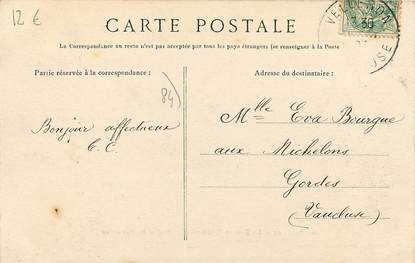 12 €
CARTE POSTALE
La Correspondance au recto n'est pas acceptée par tous les pays étrangers (se renseigner à la Poste
Partie réservée à la correspondance :
Adresse du destinataire :
84
Bonjour affectueux
E. C.
Mlle Eva Bourgue
aux Michelons
Gordes
(Vaucluse)